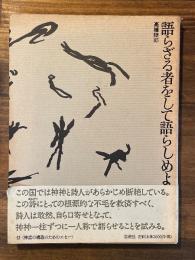 語らざる者をして語らしめよ
高橋睦郎
この国では神神と詩人があらかじめ断絶している。
この詩にとっての根源的な不毛を救済すべく、
詩人は敢然、自ら口寄せとなって、
神神一柱ずつに一人称で語らせることを試みる。
思潮社